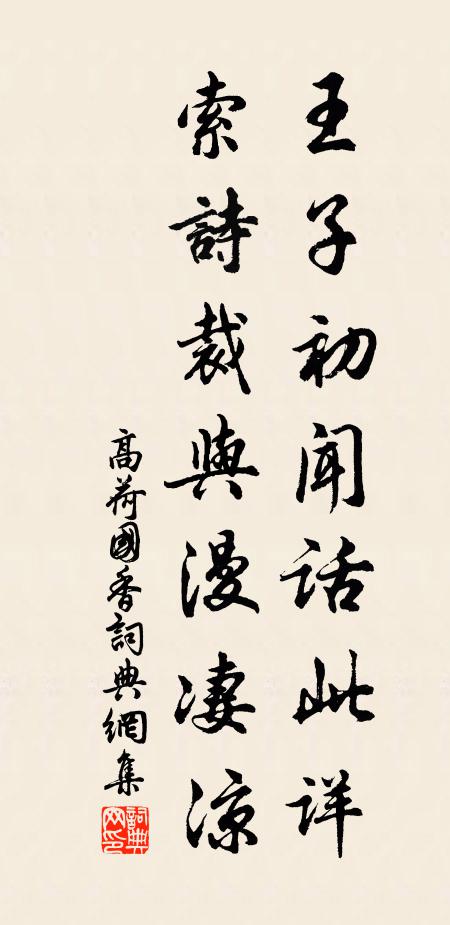 王子初闻话此详
索詩裁與漫凄涼
高荷國香詞典網集
詞典网印